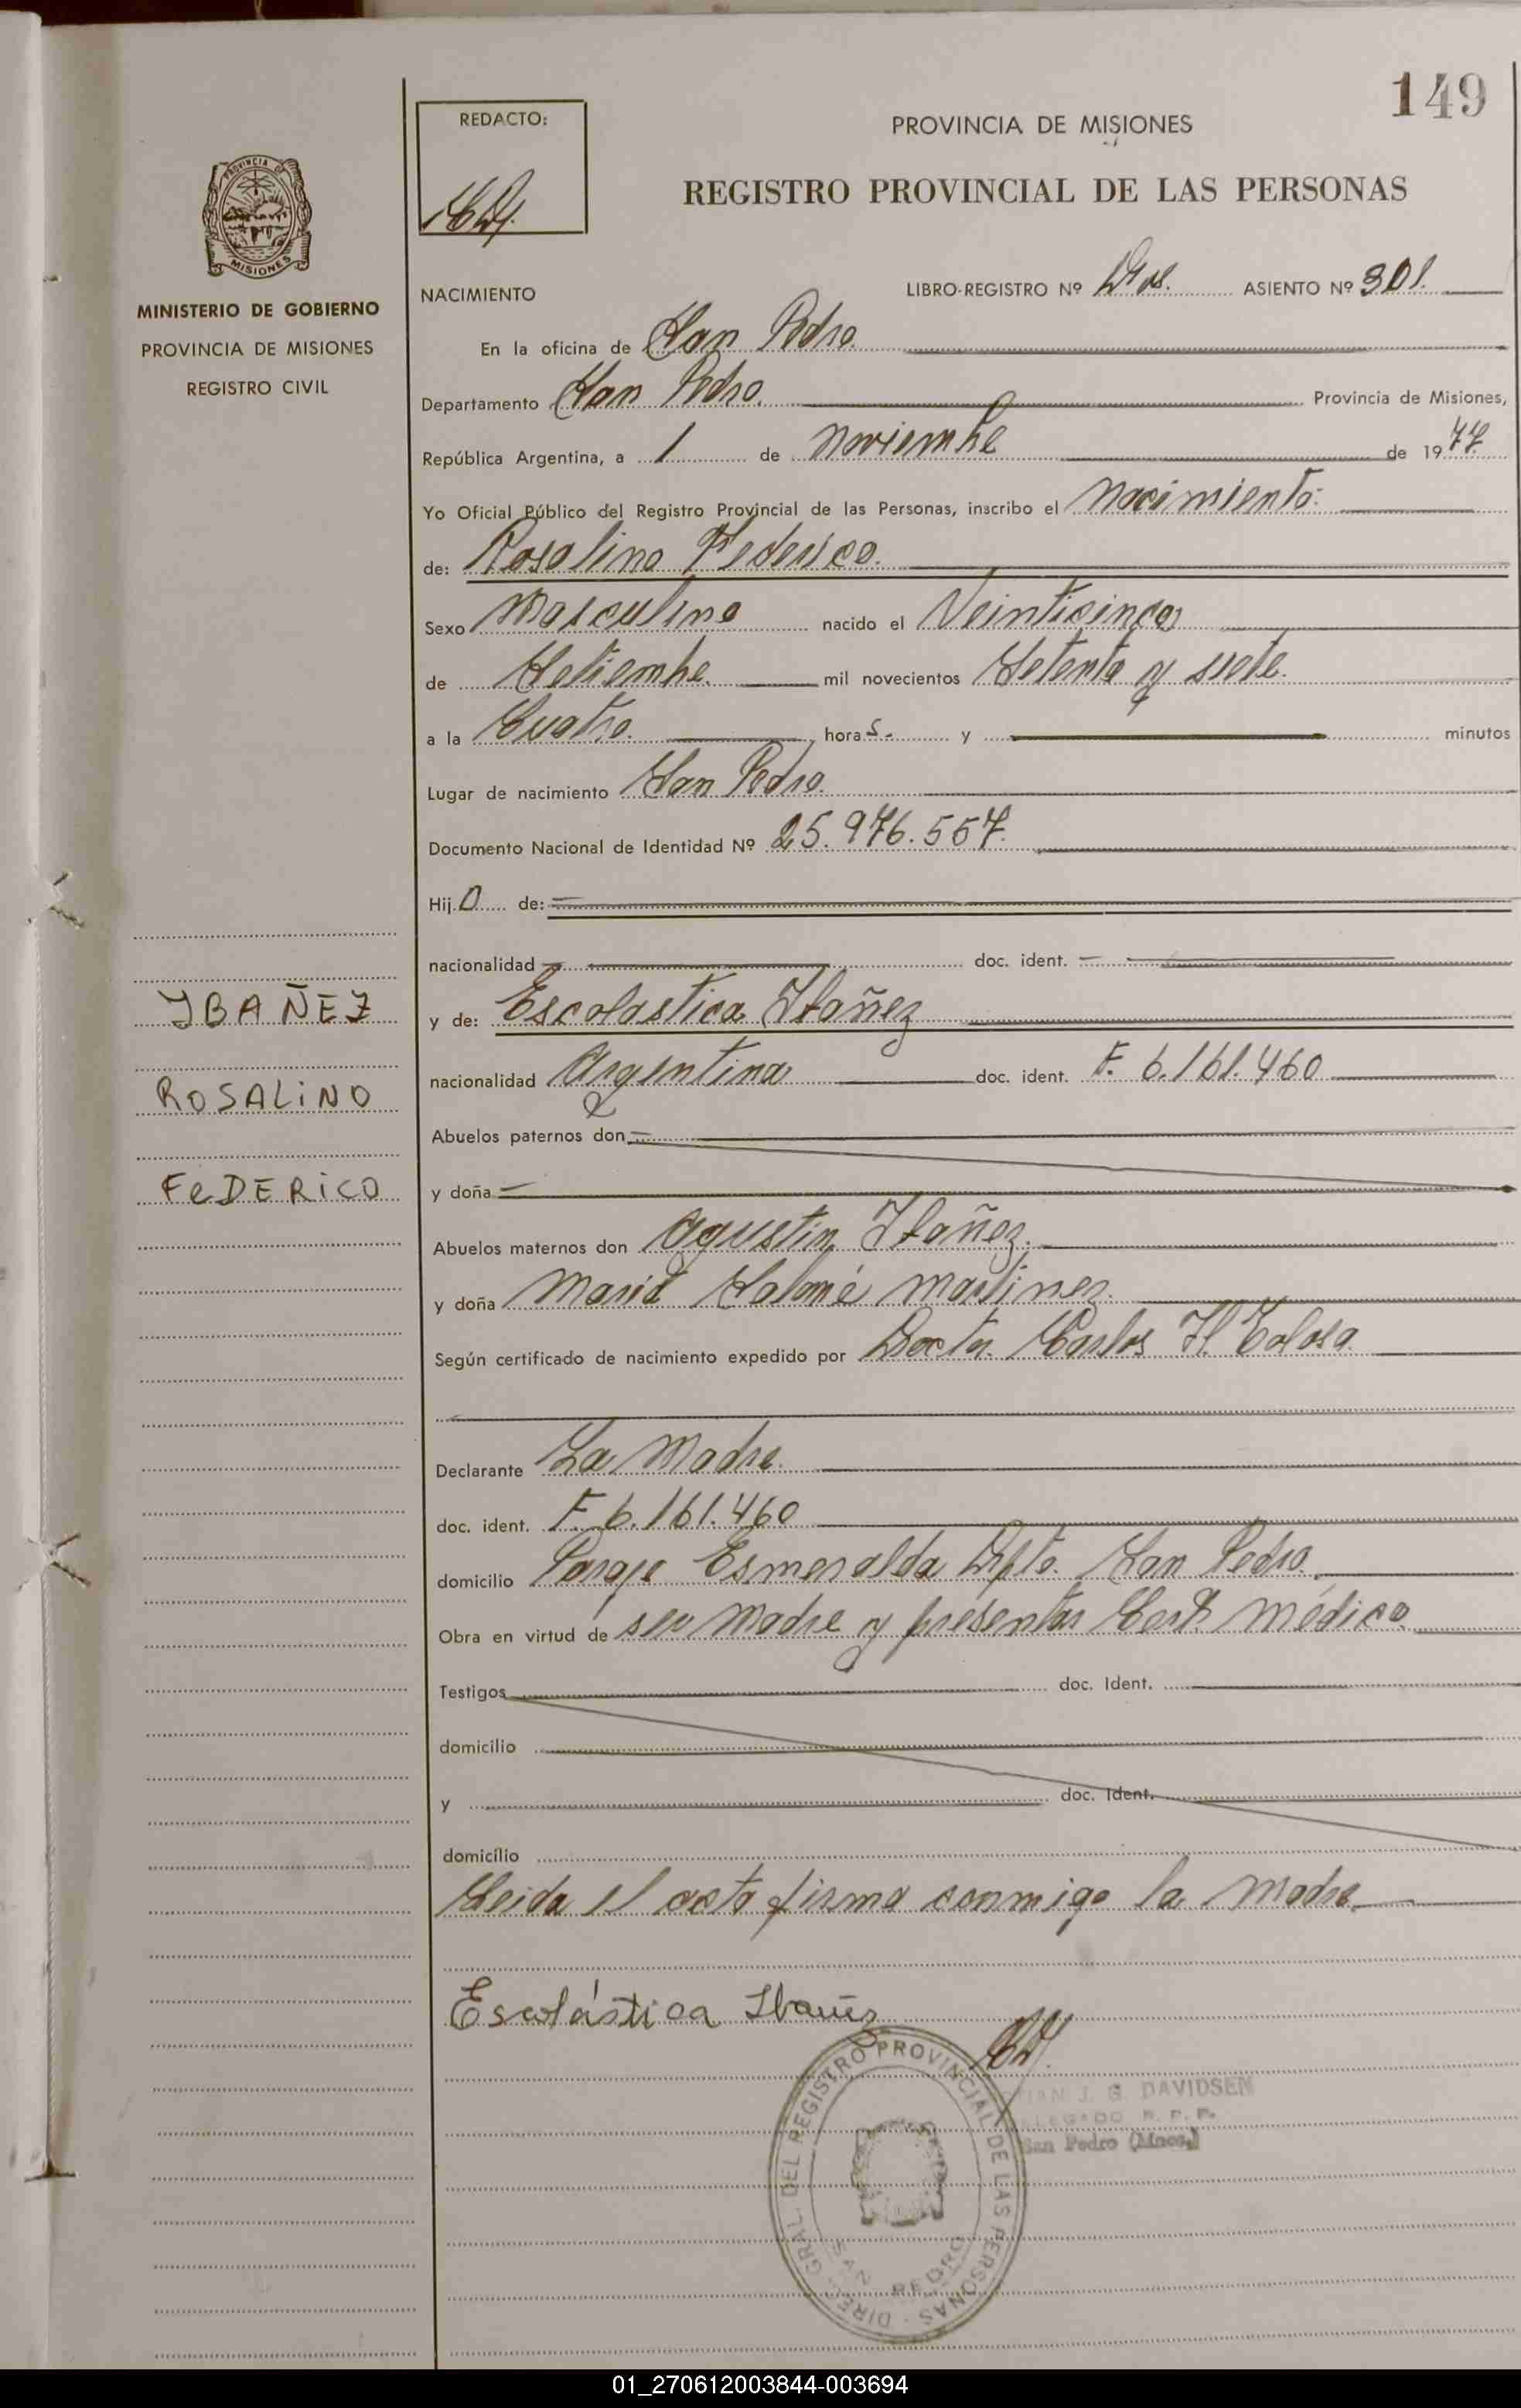 149
REDACTO:
PROVINCIA DE MISIONES
REGISTRO PROVINCIAL DE LAS PERSONAS
PROVINCIA DE
MISIONES
MINISTERIO DE GOBIERNO
PROVINCIA DE MISIONES
REGISTRO CIVIL
NACIMIENTO LIBRO-REGISTRO Nº Dos. ASIENTO Nº 301.
En la oficina de San Pedro.
Departamento San Pedro. Provincia de Misiones,
República Argentina, a 1 de Noviembre de 1977.
Yo Oficial Público del Registro Provincial de las Personas, inscribo el nacimiento:
de: Rosalino Federico.
Sexo Masculino nacido el Veinticinco
de Setiembre. mil novecientos Setenta y siete.
a la Cuatro. hora s.- y minutos
Lugar de nacimiento San Pedro.
Documento Nacional de Identidad Nº 25.976.557.
Hij o de:
nacionalidad doc. ident.
IBAÑEZ
y de: Escolastica Ibañez
nacionalidad Argentina doc. ident. F. 6.161.460
ROSALINO
Abuelos paternos don
FeDERICO
y doña
Abuelos maternos don Agustin Ibañez.
y doña Maria Salomé Martinez.
Según certificado de nacimiento expedido por Doctor Carlos H. Tolosa.
Declarante La Madre.
doc. ident. F. 6.161.460
domicilio Paraje Esmeralda Dpto. San Pedro.
Obra en virtud de ser Madre y presentar Cert. médico.
Testigos doc. Ident.
domicilio
y doc. Ident.
domicílio
Leida el acta firma conmigo la Madre.
Escolástica Ibañez
DIREC. GRAL. DEL REGISTRO PROVINCIAL DE LAS PERSONAS
SAN PEDRO
J. G. DAVIDSEN
R. P. P.
San Pedro (Mnes.)
01_270612003844-003694